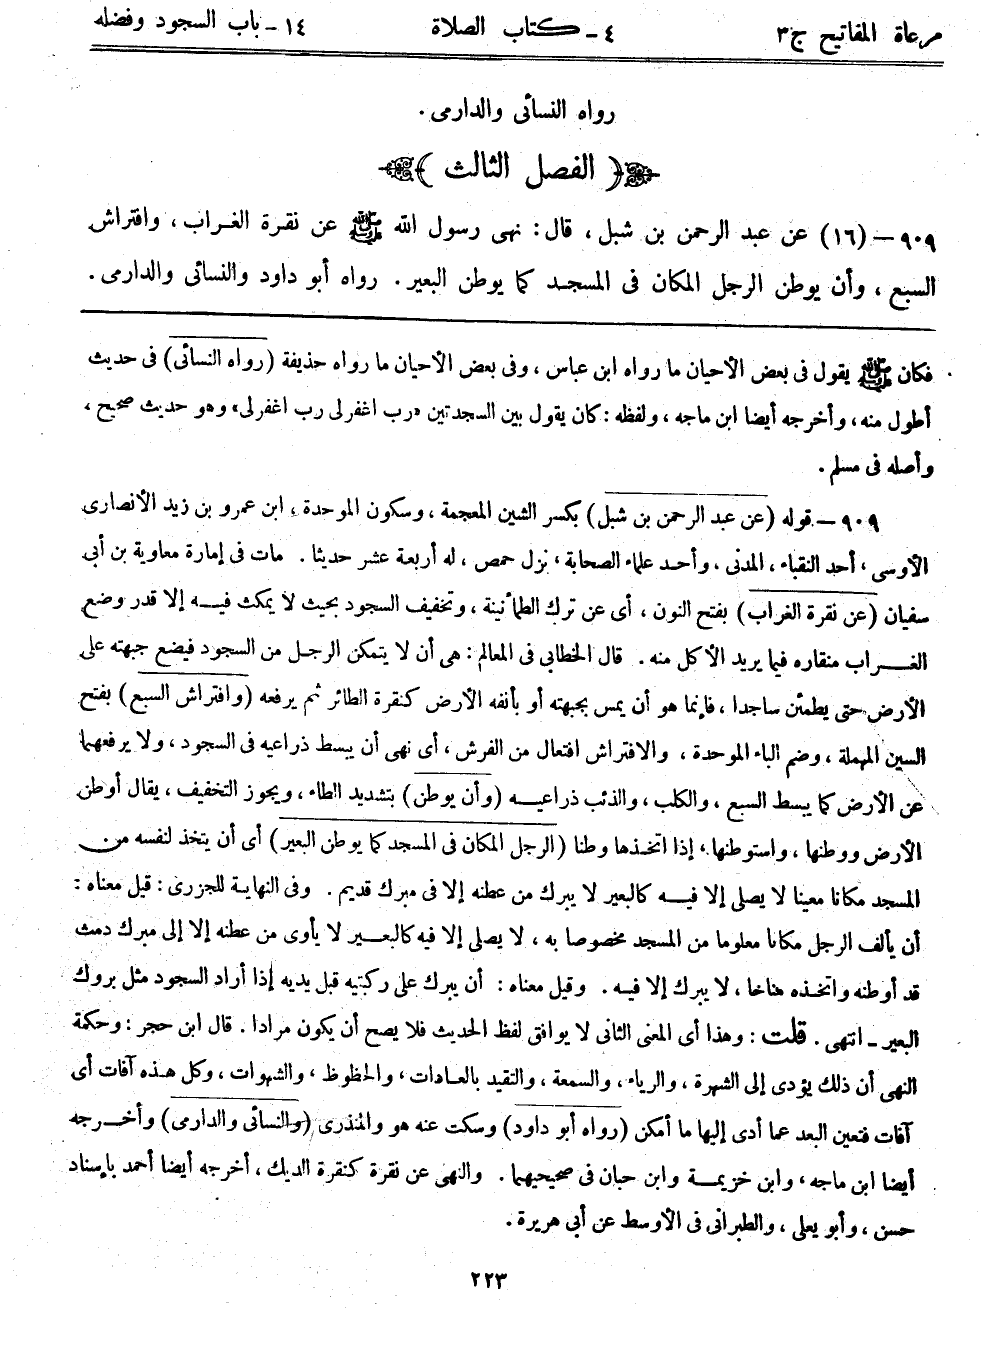 مرعاة المفاتيح ج٣ ٤ - كتاب الصلاة ١٤ - باب السجود وفضله
رواه النسائى والدارمى .
﴿ الفصل الثالث ﴾
٩٠٩ – (١٦) عن عبد الرحمن بن شبل ، قال : نهى رسول الله ﷺ عن نقرة الغراب ، وافتراش
السبع ، وأن يوطن الرجل المكان فى المسجد كما يوطن البعير . رواه أبو داود والنسائى والدارمى .
فكان ﷺ يقول فى بعض الأحيان ما رواه ابن عباس ، وفى بعض الأحيان ما رواه حذيفة (رواه النسائى) فى حديث
أطول منه ، وأخرجه أيضا ابن ماجه ، ولفظه : كان يقول بين السجدتين «رب اغفرلى رب اغفرلى» وهو حديث صحيح ،
وأصله فى مسلم .
٩٠٩ – قوله (عن عبد الرحمن بن شبل) بكسر الشين المعجمة ، وسكون الموحدة ، ابن عمرو بن زيد الأنصارى
الأوسى ، أحد النقباء ، المدنى ، وأحد علماء الصحابة ، نزل حمص ، له أربعة عشر حديثا . مات فى إمارة معاوية بن أبى
سفيان (عن نقرة الغراب) بفتح النون ، أى عن ترك الطمأنينة ، وتخفيف السجود بحيث لا يمكث فيه إلا قدر وضع
الغراب منقاره فيما يريد الأكل منه . قال الخطابى فى المعالم : هى أن لا يتمكن الرجل من السجود فيضع جبهته على
الأرض حتى يطمئن ساجدا ، فإنما هو أن يمس بجبهته أو بأنفه الأرض كنقرة الطائر ثم يرفعه (وافتراش السبع) بفتح
السين المهملة ، وضم الباء الموحدة ، والافتراش افتعال من الفرش ، أى نهى أن يبسط ذراعيه فى السجود ، ولا يرفعهما
عن الأرض كما يبسط السبع ، والكلب ، والذئب ذراعيه (وأن يوطن) بتشديد الطاء ، ويجوز التخفيف ، يقال أوطن
الأرض ووطنها ، واستوطنها ، إذا اتخذها وطنا (الرجل المكان فى المسجد كما يوطن البعير) أى أن يتخذ لنفسه من
المسجد مكانا معينا لا يصلى إلا فيه كالبعير لا يبرك من عطنه إلا فى مبرك قديم . وفى النهاية للجزرى : قيل معناه :
أن يألف الرجل مكانا معلوما من المسجد مخصوصا به ، لا يصلى إلا فيه كالبعير لا يأوى من عطنه إلا إلى مبرك دمث
قد أوطنه واتخذه مناخا ، لا يبرك إلا فيه . وقيل معناه : أن يبرك على ركبتيه قبل يديه إذا أراد السجود مثل بروك
البعير - انتهى . قلت : وهذا أى المعنى الثانى لا يوافق لفظ الحديث فلا يصح أن يكون مرادا . قال ابن حجر : وحكمة
النهى أن ذلك يؤدى إلى الشهرة ، والرياء ، والسمعة ، والتقيد بالعادات ، والحظوظ ، والشهوات ، وكل هذه آفات أى
آفات فتعين البعد عما أدى إليها ما أمكن (رواه أبو داود) وسكت عنه هو والمنذرى (والنسائى والدارمى) وأخرجه
أيضا ابن ماجه ، وابن خزيمة وابن حبان فى صحيحيهما . والنهى عن نقرة كنقرة الديك ، أخرجه أيضا أحمد بإسناد
حسن ، وأبو يعلى ، والطبرانى فى الأوسط عن أبى هريرة .
٢٢٣